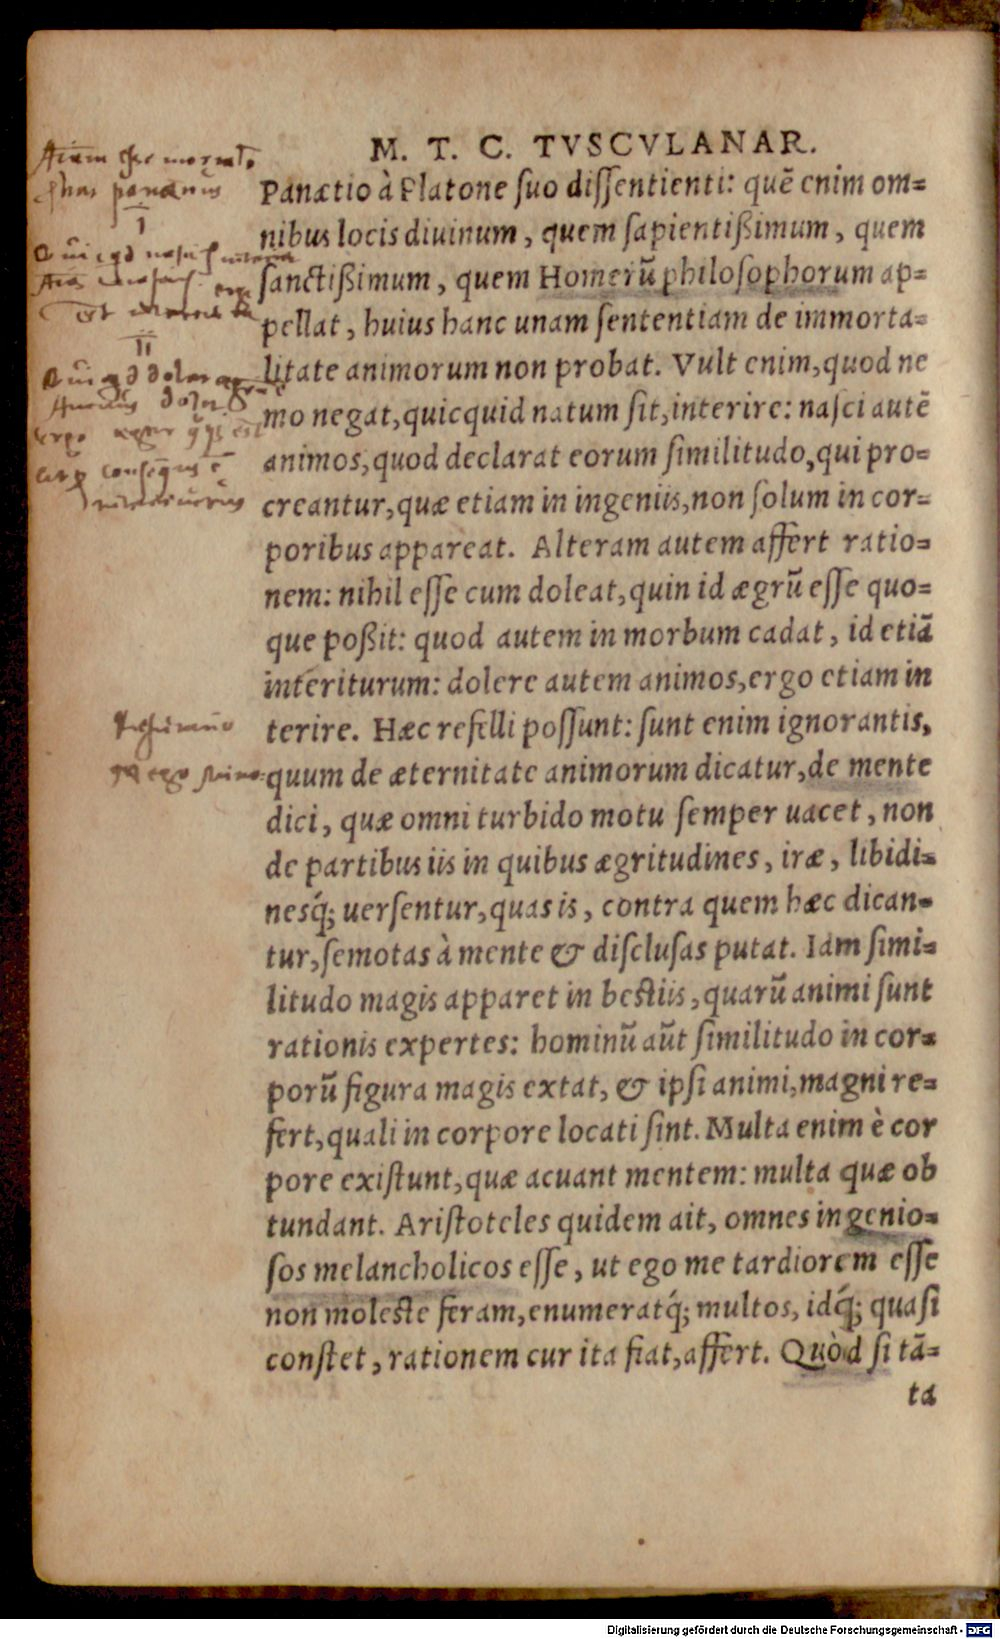 M. T. C. TVSCVLANAR.
Panætio à Platone suo dissentienti: quē enim om=
nibus locis diuinum, quem sapientißimum, quem
sanctißimum, quem Homerū philosophorum ap=
pellat, huius hanc unam sententiam de immorta=
litate animorum non probat. Vult enim, quod ne
mo negat, quicquid natum sit, interire: nasci autē
animos, quod declarat eorum similitudo, qui pro=
creantur, quæ etiam in ingeniis, non solum in cor=
poribus appareat. Alteram autem affert ratio=
nem: nihil esse cum doleat, quin id ægrū esse quo=
que poßit: quod autem in morbum cadat, id etiā
interiturum: dolere autem animos, ergo etiam in
terire. Hæc refelli possunt: sunt enim ignorantis,
quum de æternitate animorum dicatur, de mente
dici, quæ omni turbido motu semper uacet, non
de partibus iis in quibus ægritudines, iræ, libidi=
nesq́; uersentur, quas is, contra quem hæc dican=
tur, semotas à mente & disclusas putat. Iam simi=
litudo magis apparet in bestiis, quarū animi sunt
rationis expertes: hominū aūt similitudo in cor=
porū figura magis extat, & ipsi animi, magni re=
fert, quali in corpore locati sint. Multa enim è cor
pore existunt, quæ acuant mentem: multa quæ ob
tundant. Aristoteles quidem ait, omnes ingenio=
sos melancholicos esse, ut ego me tardiorem esse
non moleste feram, enumeratq́; multos, idq́; quasi
constet, rationem cur ita fiat, affert. Quòd si tā=
ta
I
II
Digitalisierung gefördert durch die Deutsche Forschungsgemeinschaft - DFG